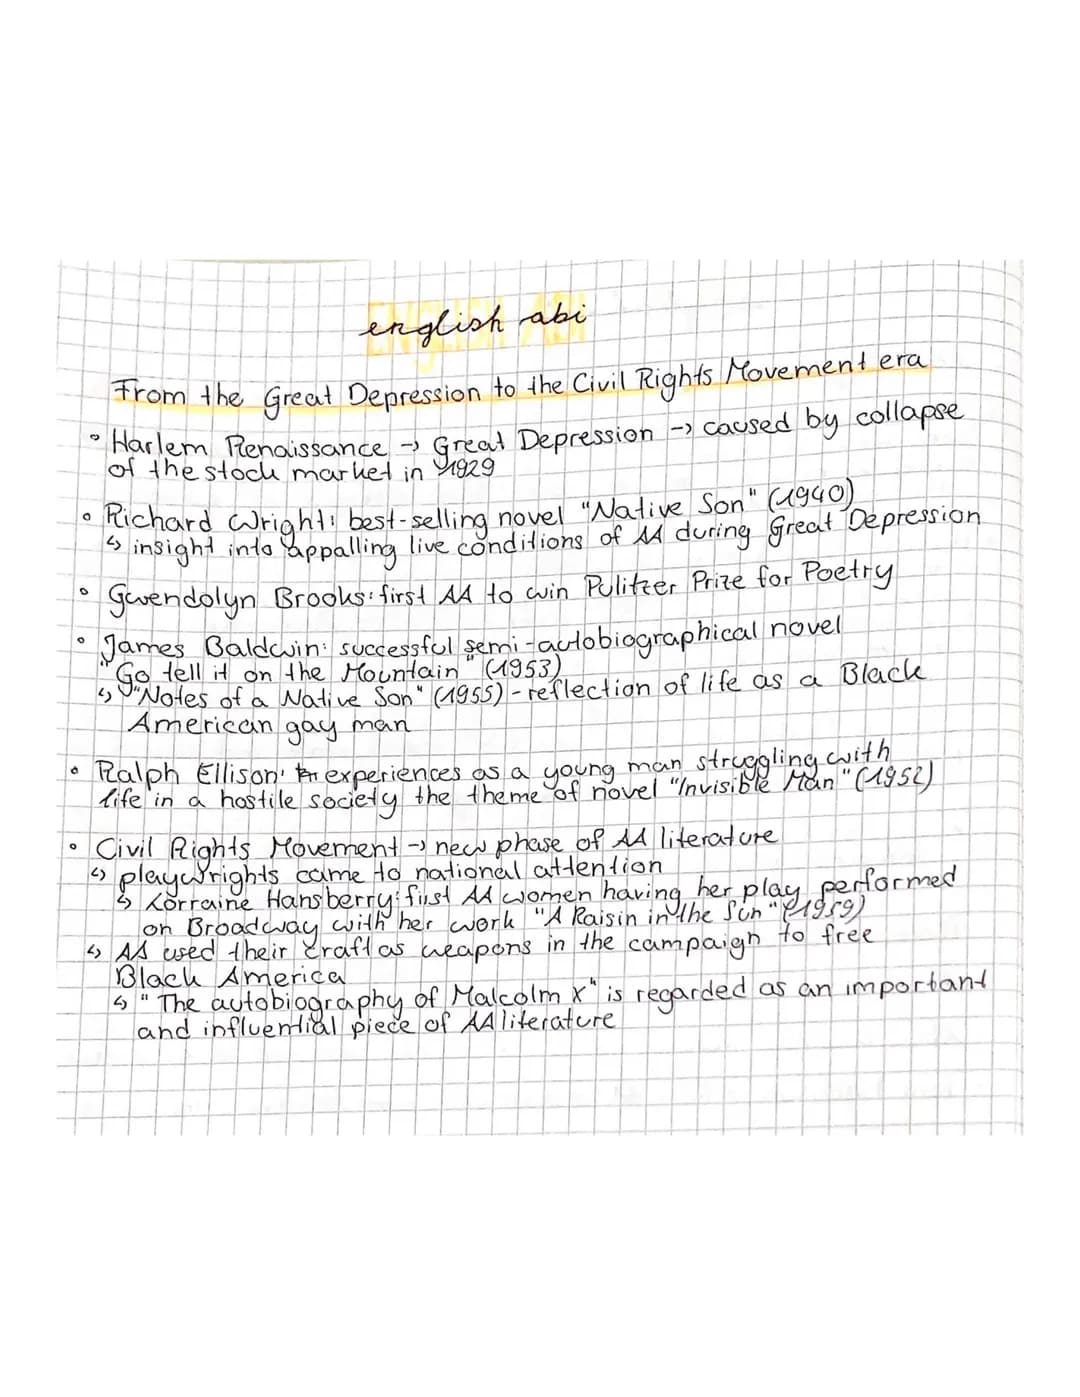 ENGLISH ABI
english abi
From the Great Depression to the Civil Rights Movement era
• Harlem Renaissance → Great Depression → caused by collapse
of the stock market in 1929
• Richard Wright: best-selling novel "Native Son" (1940)
↳ insight into appalling live conditions of AA during Great Depression
• Gwendolyn Brooks: first AA to win Pulitzer Prize for Poetry
• James Baldwin: successful semi-autobiographical novel
"Go tell it on the Mountain" (1953)
↳ "Notes of a Native Son" (1955) - reflection of life as a Black
American gay man
• Ralph Ellison: experiences as a young man struggling with
life in a hostile society the theme of novel "Invisible Man" (1952)
• Civil Rights Movement → new phase of AA literature
↳ playwrights came to national attention
↳ Lorraine Hansberry: first AA women having her play performed
on Broadway with her work "A Raisin in the Sun" (1959)
↳ AA used their craft as weapons in the campaign to free
Black America
↳ "The autobiography of Malcolm X" is regarded as an important
and influential piece of AA literature